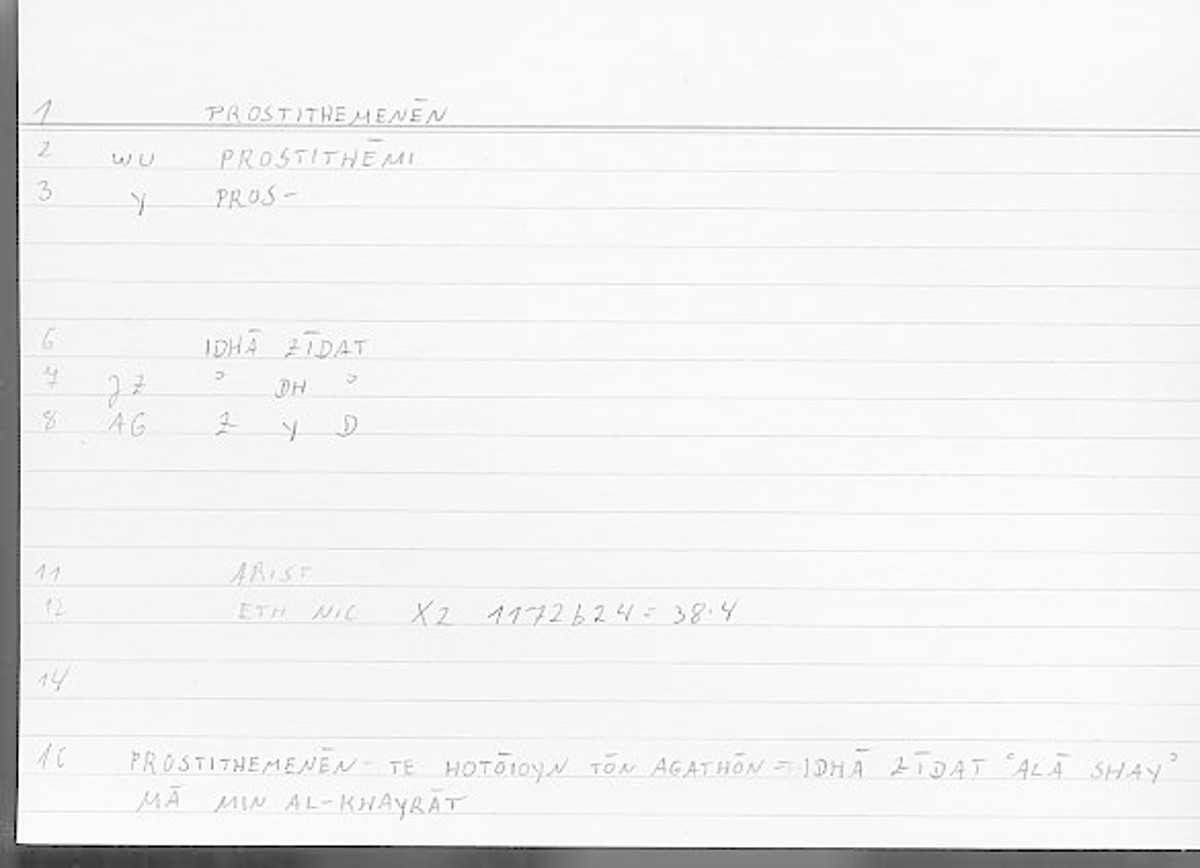 1 PROSTITHEMENĒN
2 WU PROSTITHĒMI
3 Y PROS-
6 IDHĀ ZĪDAT
7 JZ ʾ DH ʾ
8 AG Z Y D
11 ARIST
12 ETH NIC X2 1172b24 = 38.4
14
16 PROSTITHEMENĒN TE HOTŌIOYN TŌN AGATHŌN = IDHĀ ZĪDAT ʿALĀ SHAYʾ
MĀ MIN AL-KHAYRĀT